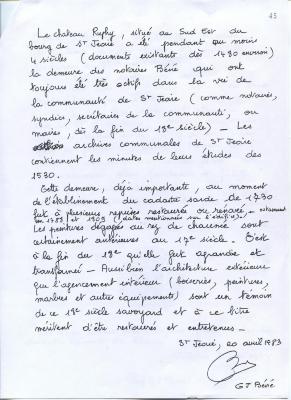 45
Le chateau Ruphy, situé au Sud Est du
bourg de St Jeoire a été pendant au moins
4 siècles (documents existants dès 1430 environ)
la demeure des notaires Béné qui ont
toujours été très actifs dans la vie de
la communauté de St Jeoire (comme notaires,
syndics, secrétaires de la communauté, ou
maires, dès la fin du 18e siècle) - Les
archives communales de St Jeoire
contiennent les minutes de leurs études dès
1530.
Cette demeure, déjà importante, au moment
de l'établissement du cadastre sarde de 1730
fut à plusieurs reprises restaurée ou rénovée - notamment
en 1783 et 1909 (dates mentionnées sur l'édifice).
Les peintures dégagées au rez de chaussée sont
certainement antérieures au 17e siècle. C'est
à la fin du 18e qu'elle fut agrandie et
transformée - Aussi bien l'architecture extérieure
que l'agencement intérieur (boiseries, peintures,
marbres et autres équipements) sont un témoin
de ce 18e siècle savoyard et à ce titre
méritent d'être restaurés et entretenus -
St Jeoire, 20 avril 1983
GJ Béné